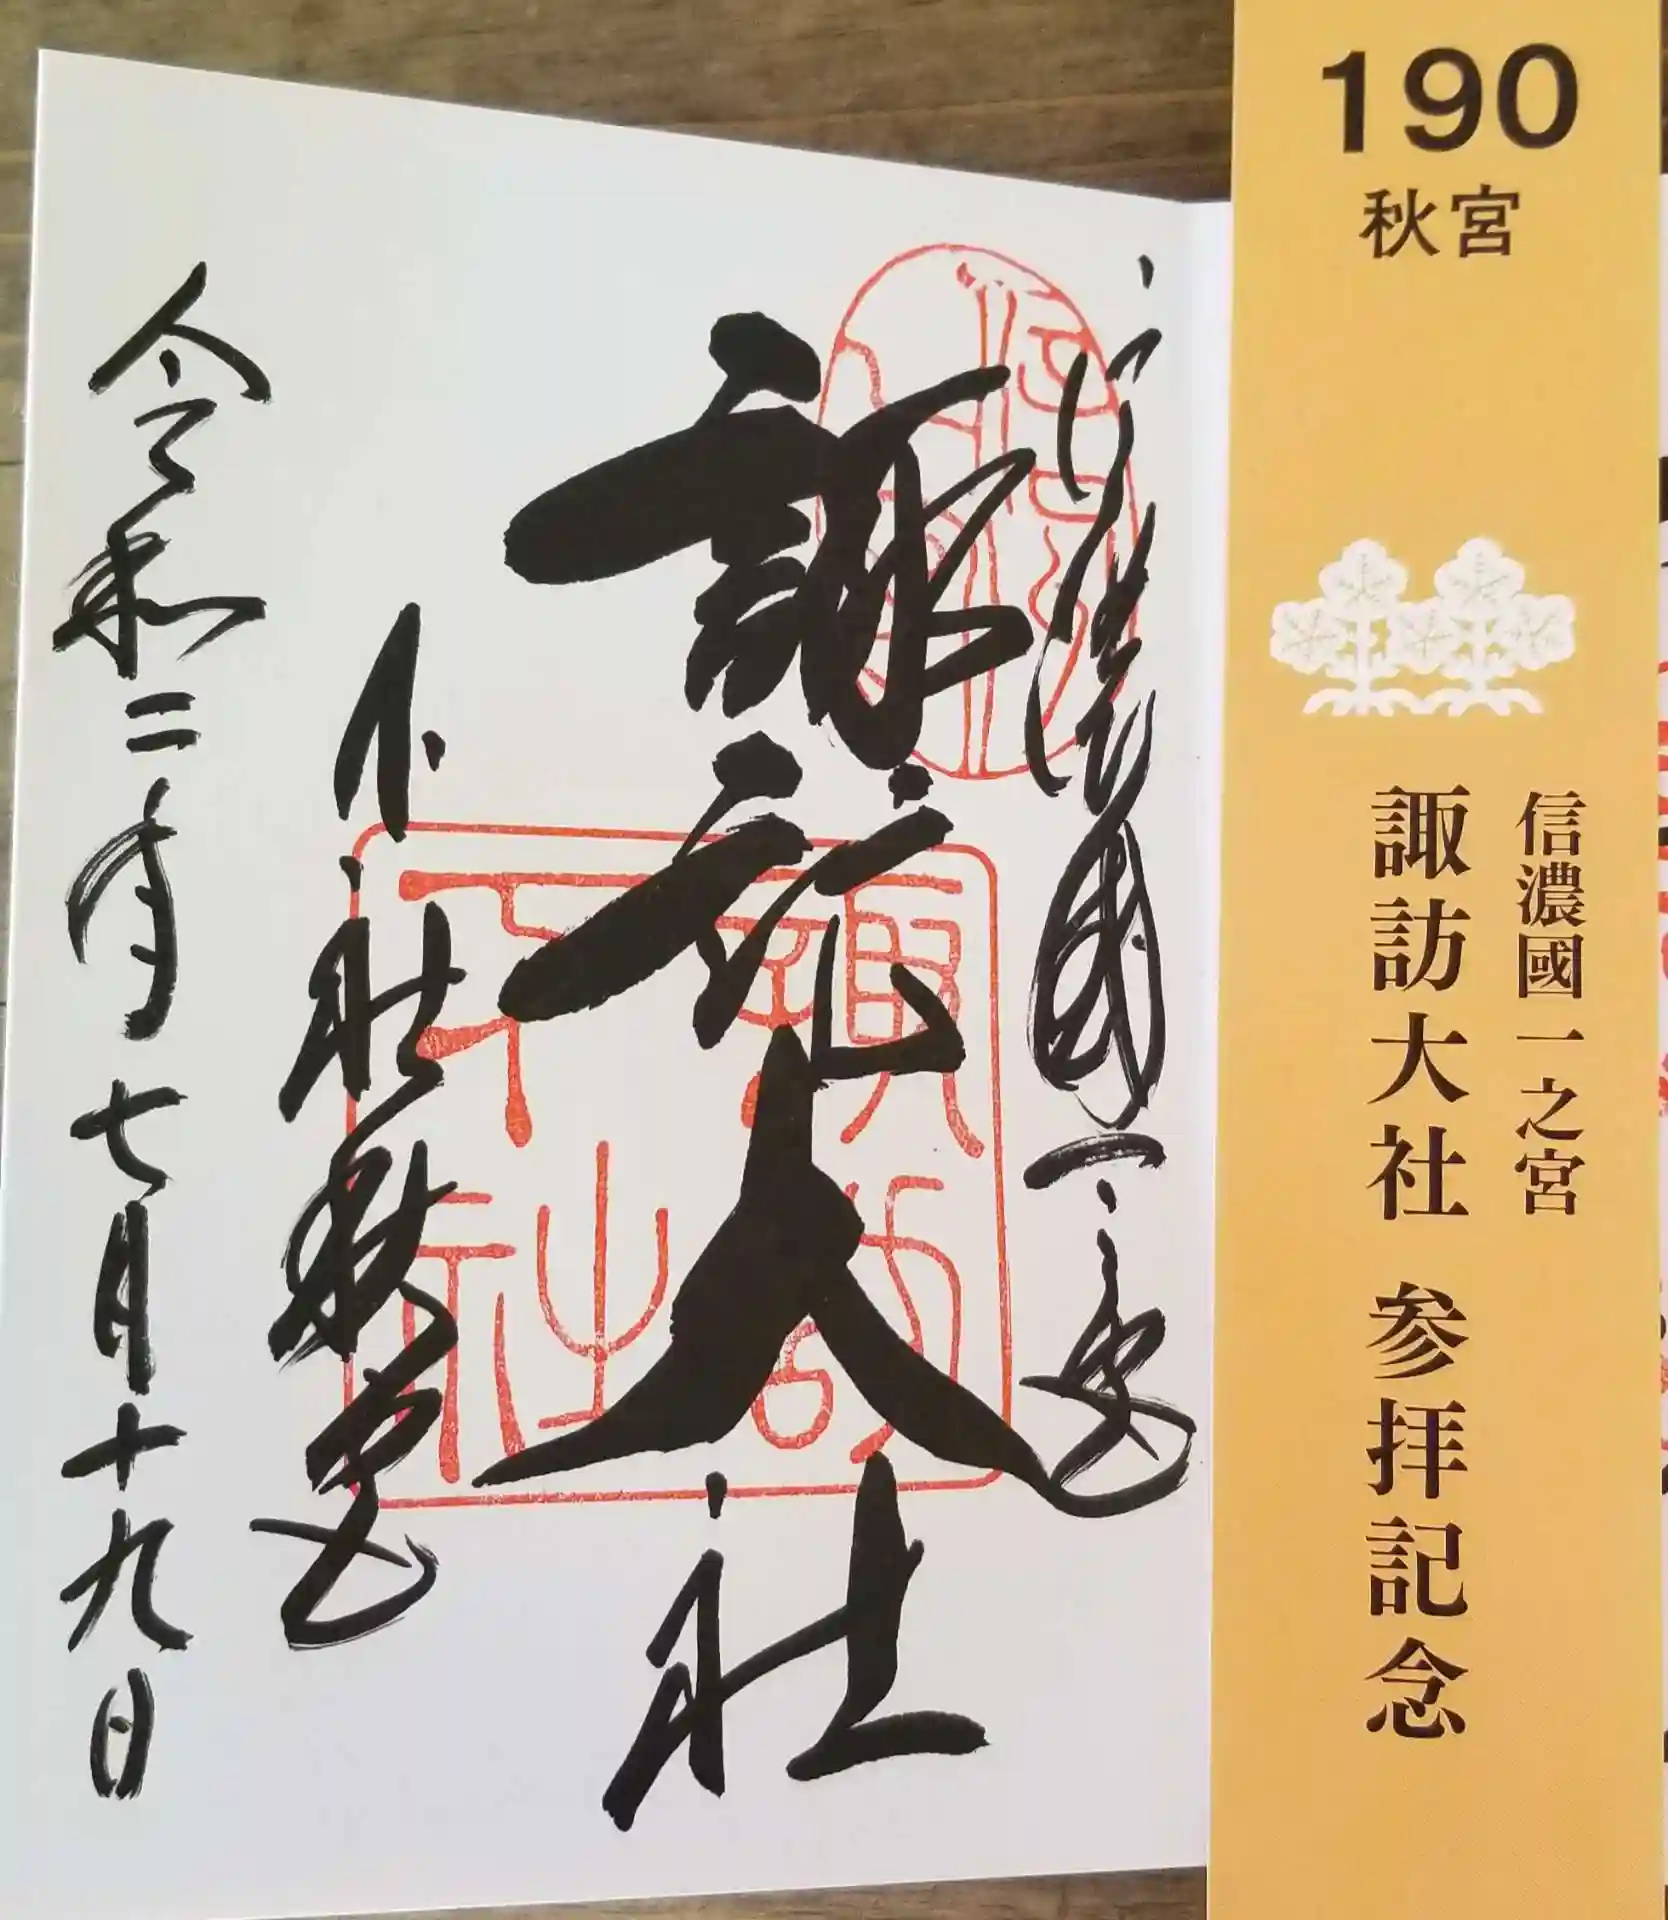 190
秋宮
信濃國一之宮
諏訪大社 参拝記念
信濃國一之宮
諏訪大社
下社秋宮
令和二年七月十九日
諏訪
下社